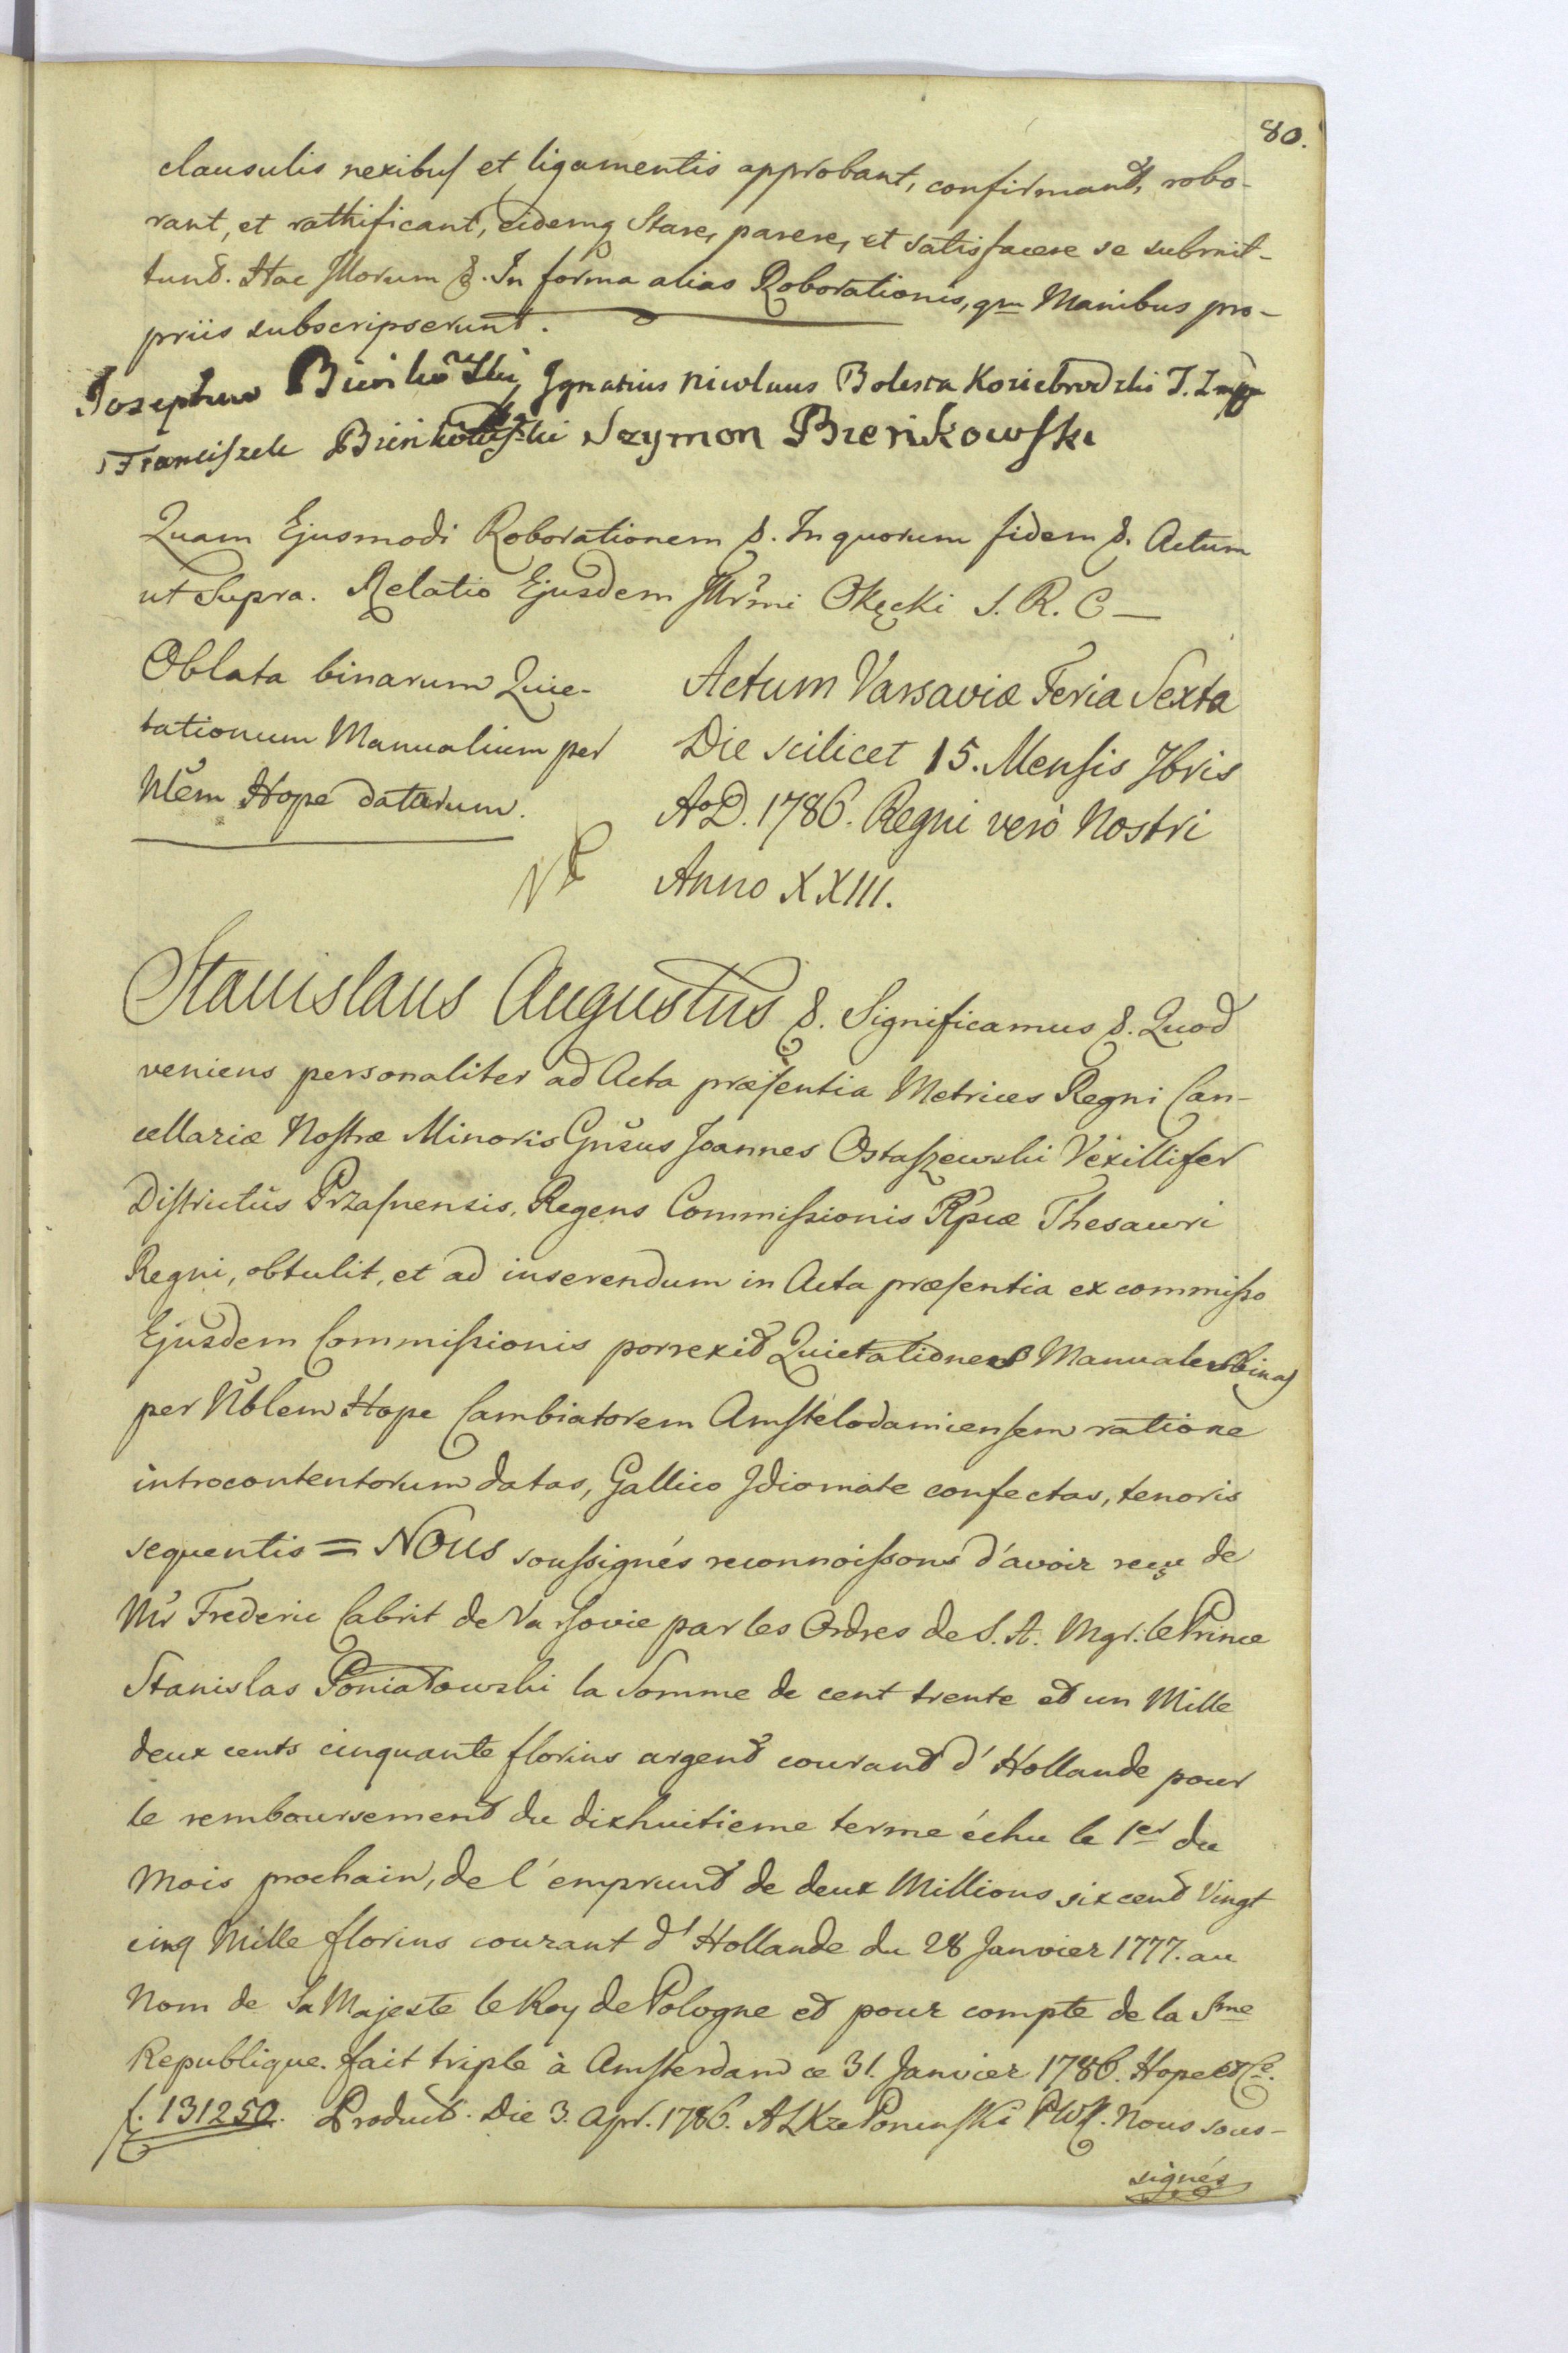 80.
clausulis nexibus et ligamentis approbant, confirmant, robo-
rant, et rathificant, eidemq Stare, parere, et satisfacere se submit-
tunt. Hac Illorum &. In forma alias Roborationis, qm Manibus pro-
priis subscripserunt.
Josephus Bienkowski, Ignatius Nicolaus Bolesta Koziebrodzki
Franciszek Bienkowski Szymon Bienkowski
Quam Ejusmodi Roborationem &. In quorum fidem &. Actum
ut Supra. Relatio Ejusdem Illrmi Okęcki S. R. C —
Oblata binarum Quie-
tationum Manualium per
Nlem Hope datarum.
Actum Varsaviæ Feria Sexta
Die scilicet 15. Mensis 7bris
AoD. 1786. Regni verò Nostri
Anno XXIII.
Stanislaus Augustus &. Significamus &. Quod
veniens personaliter ad Acta præsentia Metrices Regni Can-
cellariæ Nostræ Minoris Gnsus Joannes Ostaszewski Vexillifer
Districtûs Przasnensis, Regens Commissionis Rpcæ Thesauri
Regni, obtulit, et ad inserendum in Acta præsentia ex commisso
Ejusdem Commissionis porrexit Quietationes Manuales binas
per Nblem Hope Cambiatorem Amstelodamiensem ratione
introcontentorum datas, Gallico Idiomate confectas, tenoris
sequentis = Nous soussignés reconnoissons d'avoir reçu de
Mr Frederic Cabrit de Varsovie par les Ordres de S. A. Mgr. le Prince
Stanislas Poniatowski la Somme de cent trente et un Mille
deux cents cinquante florins argent courant d'Hollande pour
le remboursement du dixhuitieme terme échu le 1er du
Mois prochain, de l'emprunt de deux Millions six cent Vingt
cinq Mille florins courant d'Hollande du 28 Janvier 1777. au
Nom de Sa Majeste le Roy de Pologne et pour compte de la Sme
Republique. fait triple à Amsterdam ce 31. Janvier 1786. Hope et Ce.
f. 131250. Product. Die 3. Apr. 1786. Poninski Nous sous-
signés